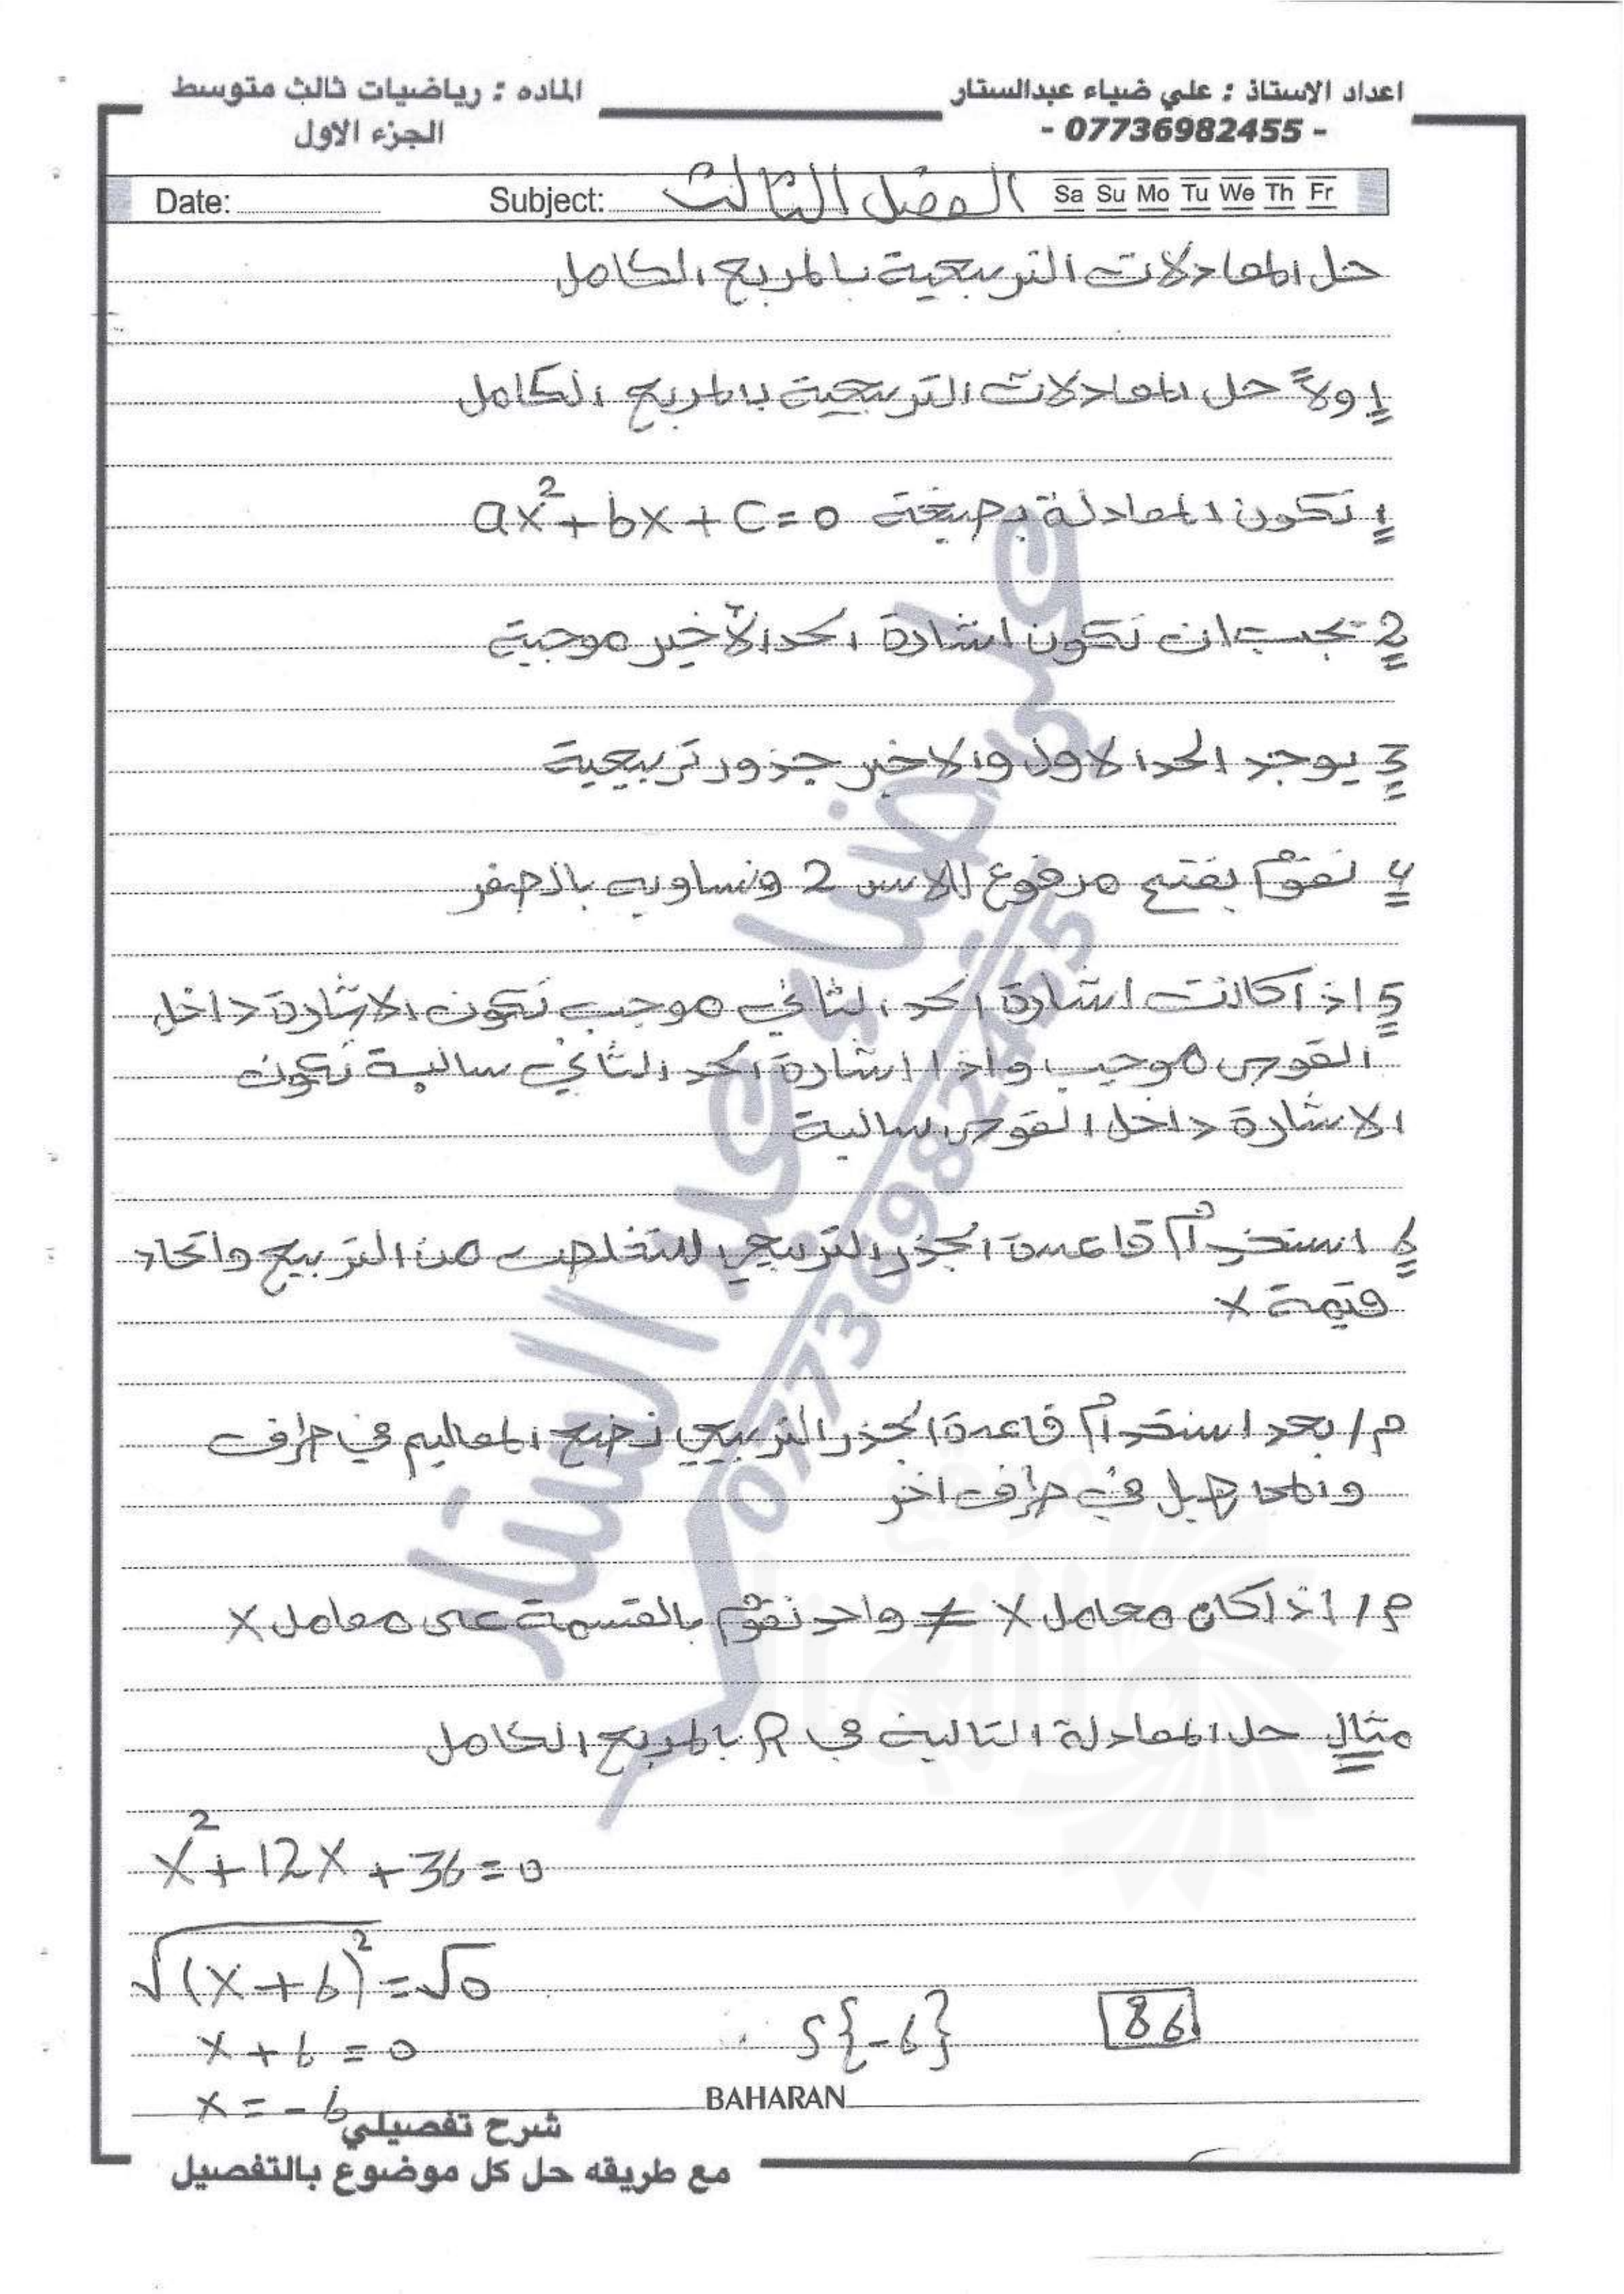 اعداد الاستاذ : علي ضياء عبدالستار
- 07736982455 -
الماده : رياضيات ثالث متوسط
الجزء الاول
Date: Subject: الفصل الثالث Sa Su Mo Tu We Th Fr
حل المعادلات التربيعية بالمربع الكامل
اولاً حل المعادلات التربيعية بالمربع الكامل
1 تكون المعادلة بصيغة ax²+bx+c=0
2 يجب ان تكون اشارة الحد الأخير موجبة
3 يوجد الحد الاول والاخير جذور تربيعية
4 نقوم بفتح مرفوع للاس 2 ونساويه بالصفر
5 اذا كانت اشارة الحد الثاني موجب تكون الاشارة داخل
القوس موجب واذا اشارة الحد الثاني سالبة تكون
الاشارة داخل القوس سالبة
6 استخدام قاعدة الجذر التربيعي للتخلص من التربيع واتحاد
قيمة x
م/ بعد استخدام قاعدة الجذر التربيعي نضع المعاليم في طرف
والمجاهيل في طرف اخر
م/ اذا كان معامل x ≠ واحد نقوم بالقسمة على معامل x
مثال حل المعادلة التالية في R بالمربع الكامل
x²+12x+36=0
√(x+6)²=√0
x+6=0
S{-6}
86
x=-6
BAHARAN
شرح تفصيلي
مع طريقه حل كل موضوع بالتفصيل
علي ضياء عبد الستار
07736982455